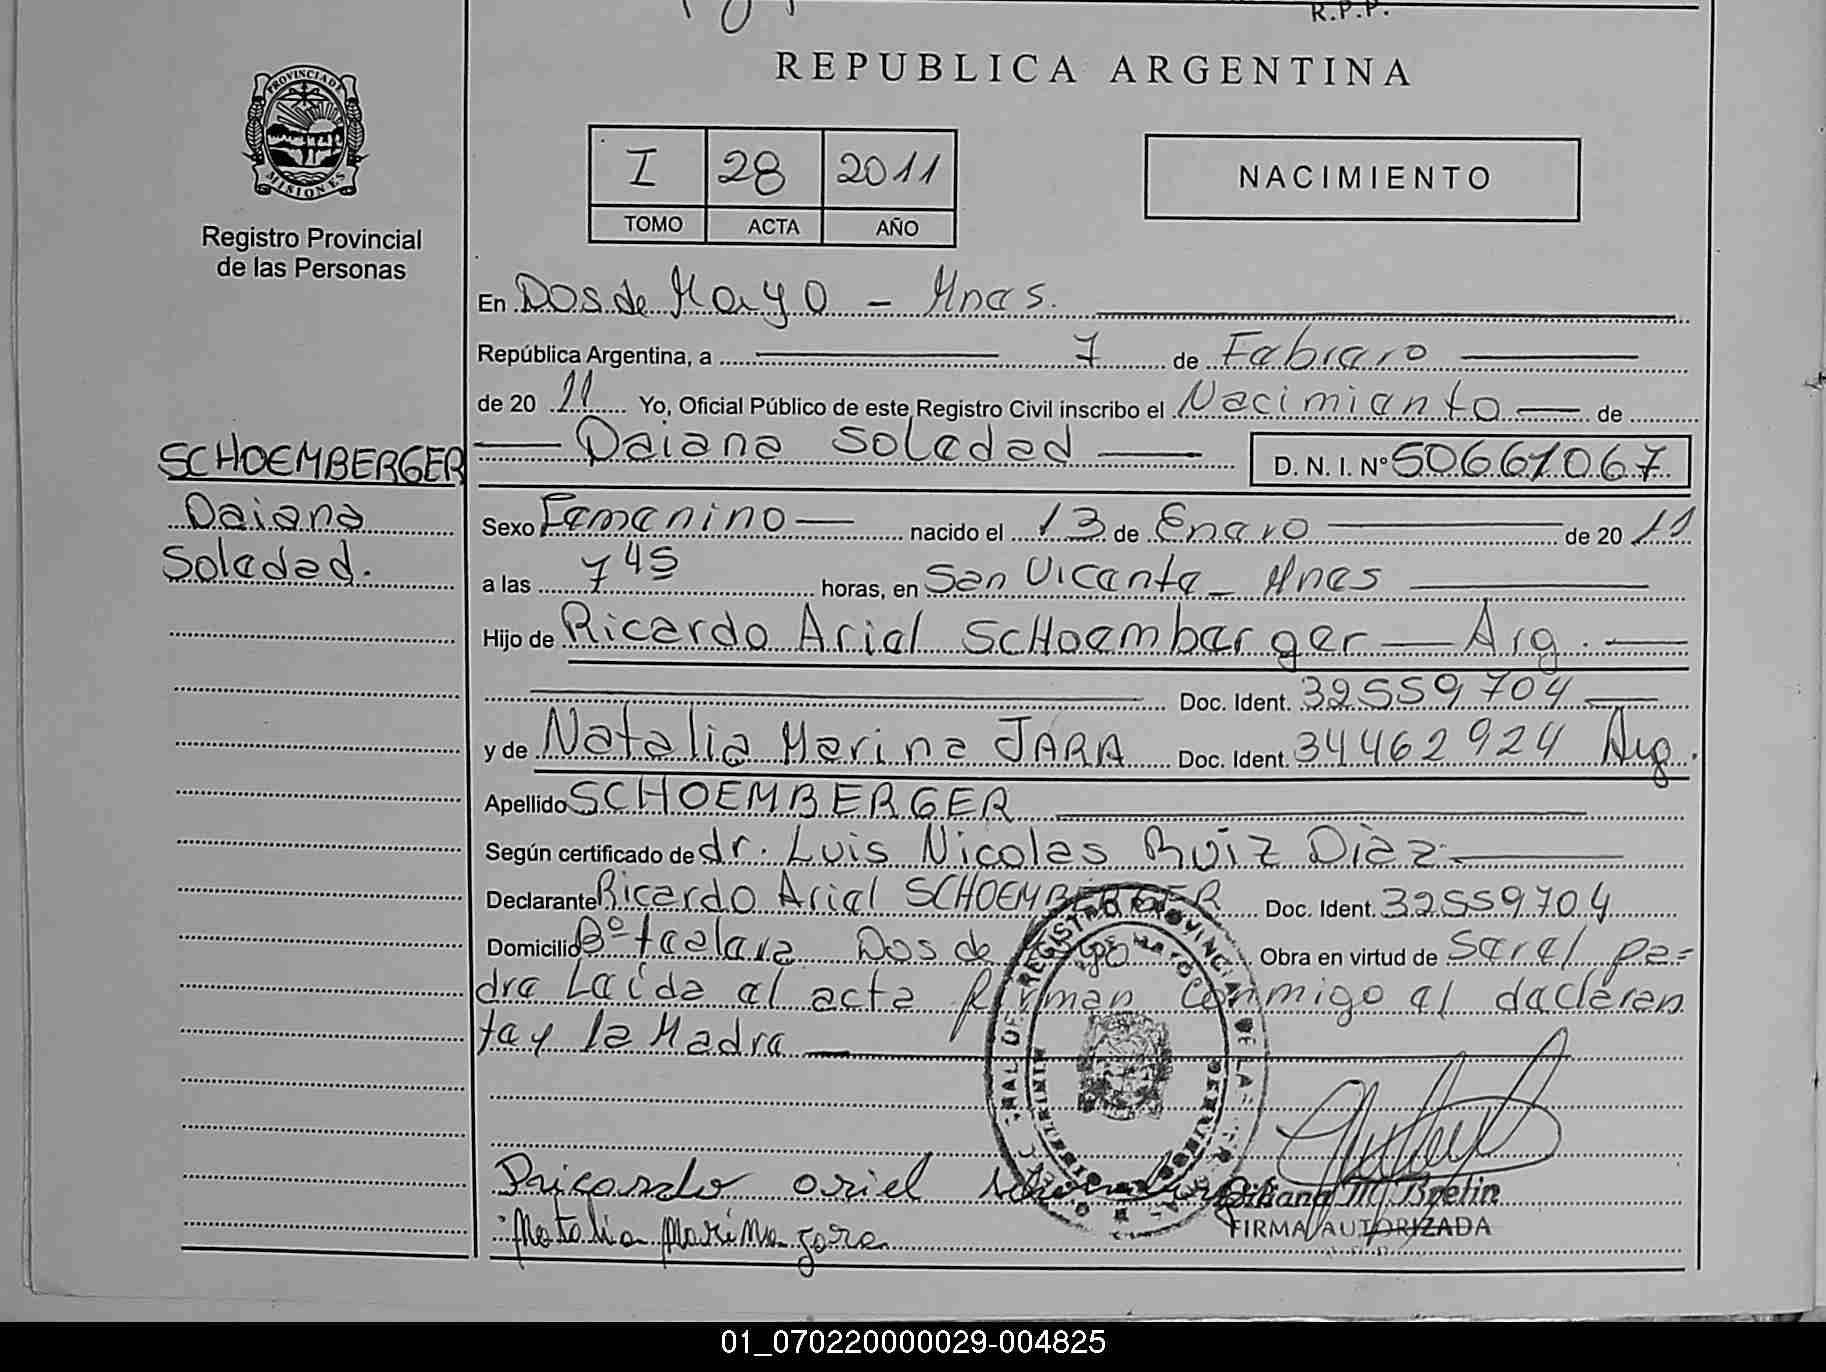 R.P.P.
REPUBLICA ARGENTINA
PROVINCIA DE
MISIONES
Registro Provincial
de las Personas
I 28 2011
TOMO ACTA AÑO
NACIMIENTO
En Dos de Mayo - Mnas.
República Argentina, a 7 de Febrero
de 20 11 Yo, Oficial Público de este Registro Civil inscribo el Nacimiento de
Daiana Soledad D. N. I. Nº 50661067
SCHOEMBERGER
Daiana
Soledad.
Sexo Femenino nacido el 13 de Enero de 20 11
a las 7 45 horas, en San Vicente - Mnes
Hijo de Ricardo Ariel SCHoemberger Arg.
Doc. Ident. 32559704
y de Natalia Marina JARA Doc. Ident. 34462924 Arg.
Apellido SCHOEMBERGER
Según certificado de dr. Luis Nicolas Ruiz Diaz
Declarante Ricardo Ariel SCHOEMBERGER Doc. Ident. 32559704
Domicilio Bº Dos de Obra en virtud de Ser el pa=
dre Leída el acta firman conmigo el declaran
te y la Madre
Ricardo oriel
Natalia Marina Jara
FIRMA AUTORIZADA
01_070220000029-004825